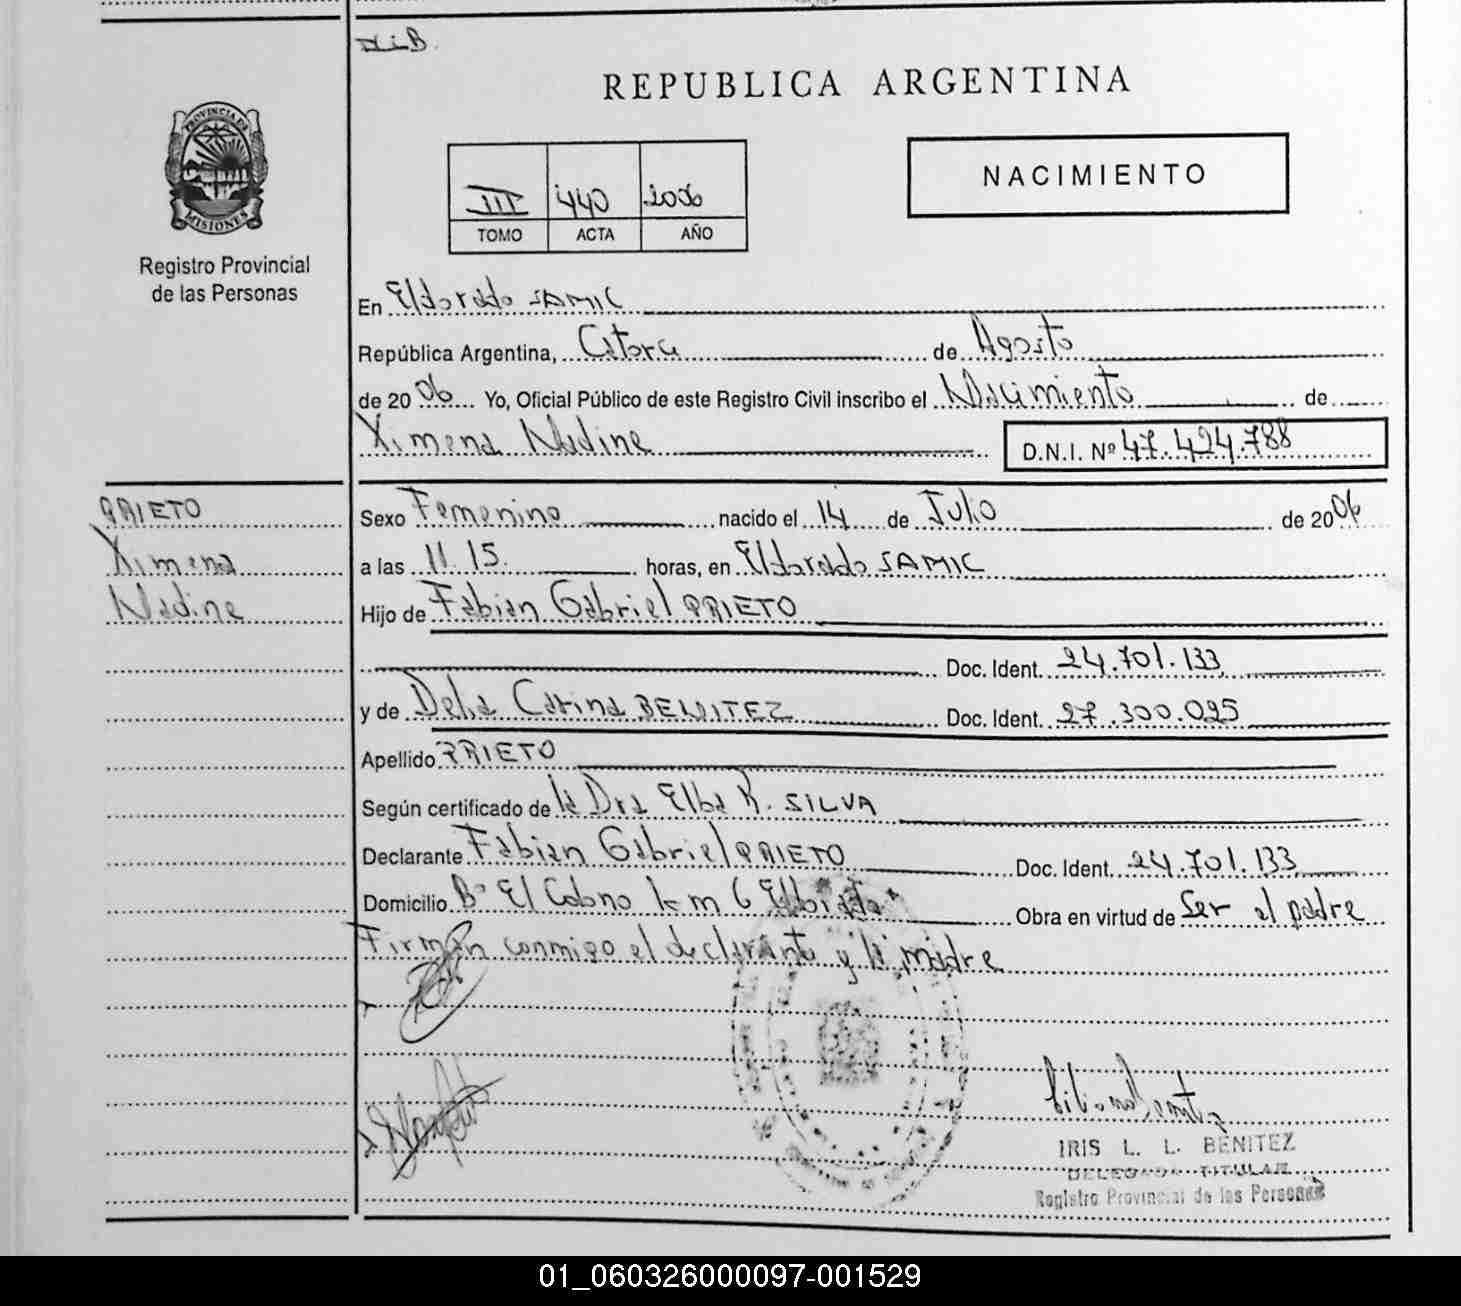 REPUBLICA ARGENTINA
NACIMIENTO
III 440 2006
TOMO ACTA AÑO
PROVINCIA DE
MISIONES
Registro Provincial
de las Personas
En Eldorado SAMIC
República Argentina, Catorce de Agosto
de 2006 Yo, Oficial Público de este Registro Civil inscribo el Nacimiento de
Ximena Nadine D.N.I. Nº 47.424.788
PRIETO
Ximena
Nadine
Sexo Femenino nacido el 14 de Julio de 2006
a las 11.15 horas, en Eldorado SAMIC
Hijo de Fabian Gabriel PRIETO
Doc. Ident. 24.701.133
y de Delia Carina BENITEZ Doc. Ident. 27.300.025
Apellido PRIETO
Según certificado de la Dra Elba R. SILVA
Declarante Fabian Gabriel PRIETO Doc. Ident. 24.701.133
Domicilio Bº El Cobno km 6 Eldorado Obra en virtud de Ser el padre
Firman conmigo el declarante y la madre
IRIS L. L. BENITEZ
DELEGADA TITULAR
Registro Provincial de las Personas
01_060326000097-001529